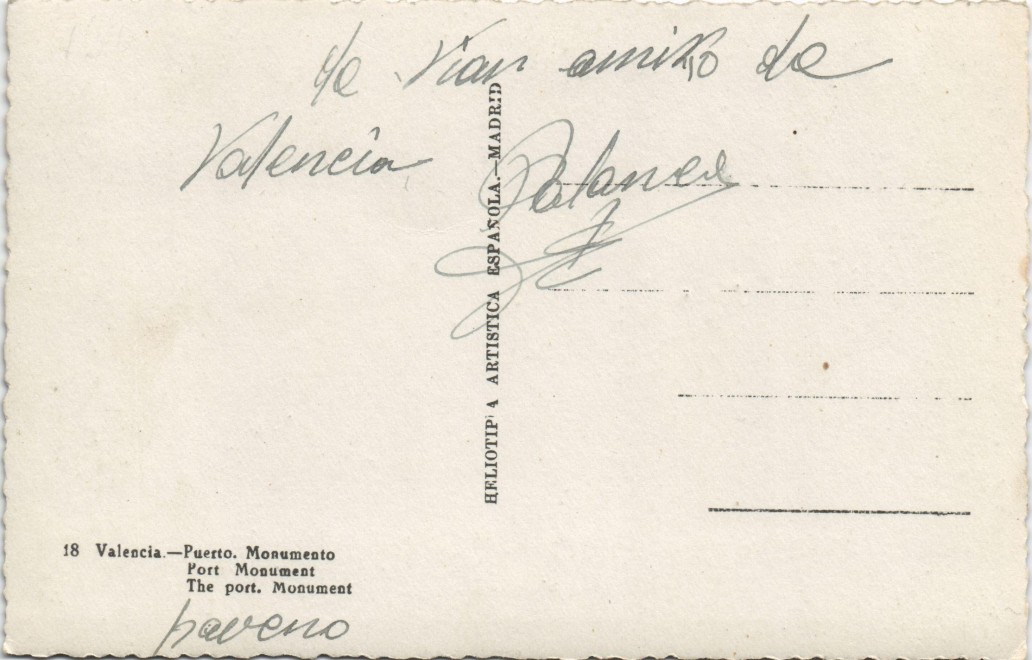 de Vian amiko de
Valencia
HELIOTIPIA ARTISTICA ESPAÑOLA.—MADRID
18 Valencia.—Puerto. Monumento
Port Monument
The port. Monument